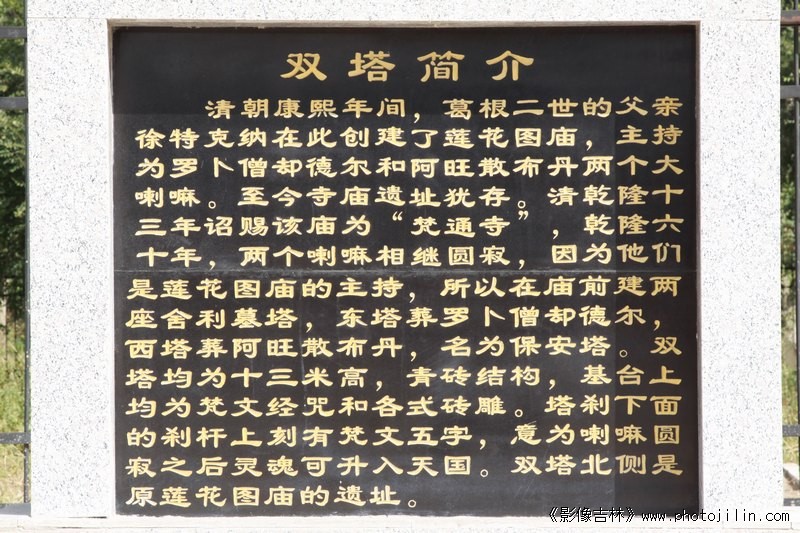 双塔简介
清朝康熙年间，葛根二世的父亲
徐特克纳在此创建了莲花图庙，主持
为罗卜僧却德尔和阿旺散布丹两个大
喇嘛。至今寺庙遗址犹存。清乾隆十
三年诏赐该庙为“梵通寺”，乾隆六
十年，两个喇嘛相继圆寂，因为他们
是莲花图庙的主持，所以在庙前建两
座舍利墓塔，东塔葬罗卜僧却德尔，
西塔葬阿旺散布丹，名为保安塔。双
塔均为十三米高，青砖结构，基台上
均为梵文经咒和各式砖雕。塔刹下面
的刹杆上刻有梵文五字，意为喇嘛圆
寂之后灵魂可升入天国。双塔北侧是
原莲花图庙的遗址。
《影像吉林》www.photojilin.com